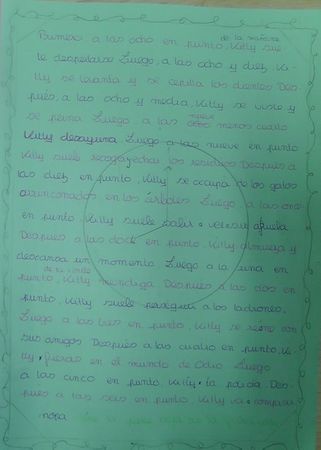 de la mañana
Primero a las ocho en punto, Killy sue
le despertarse Luego, a las ocho y diez, Ki-
lly se levanta y se cepilla los dientes Des
pués, a las ocho y media, Killy se viste y
se peina Luego, a las nueve menos cuarto
Killy desayuna. Luego a las nueve en punto
Killy suele los residuos Después a
las diez en punto, Killy se ocupa de los gatos
arrinconados en los árboles Luego a las once
en punto, Killy suele salir a
Después a las doce en punto, Killy almuerza y
descansa un momento Luego a la una en
punto, Killy mendiga Después a las dos en
punto, Killy suele perseguir a los ladrones.
Luego a las tres en punto, Killy se reúne con
sus amigos Después a las cuatro en punto, Ki-
lly en el mundo de Luego
a las cinco en punto, Killy Des-
pués a las seis en punto, Killy va a comprar
ropa